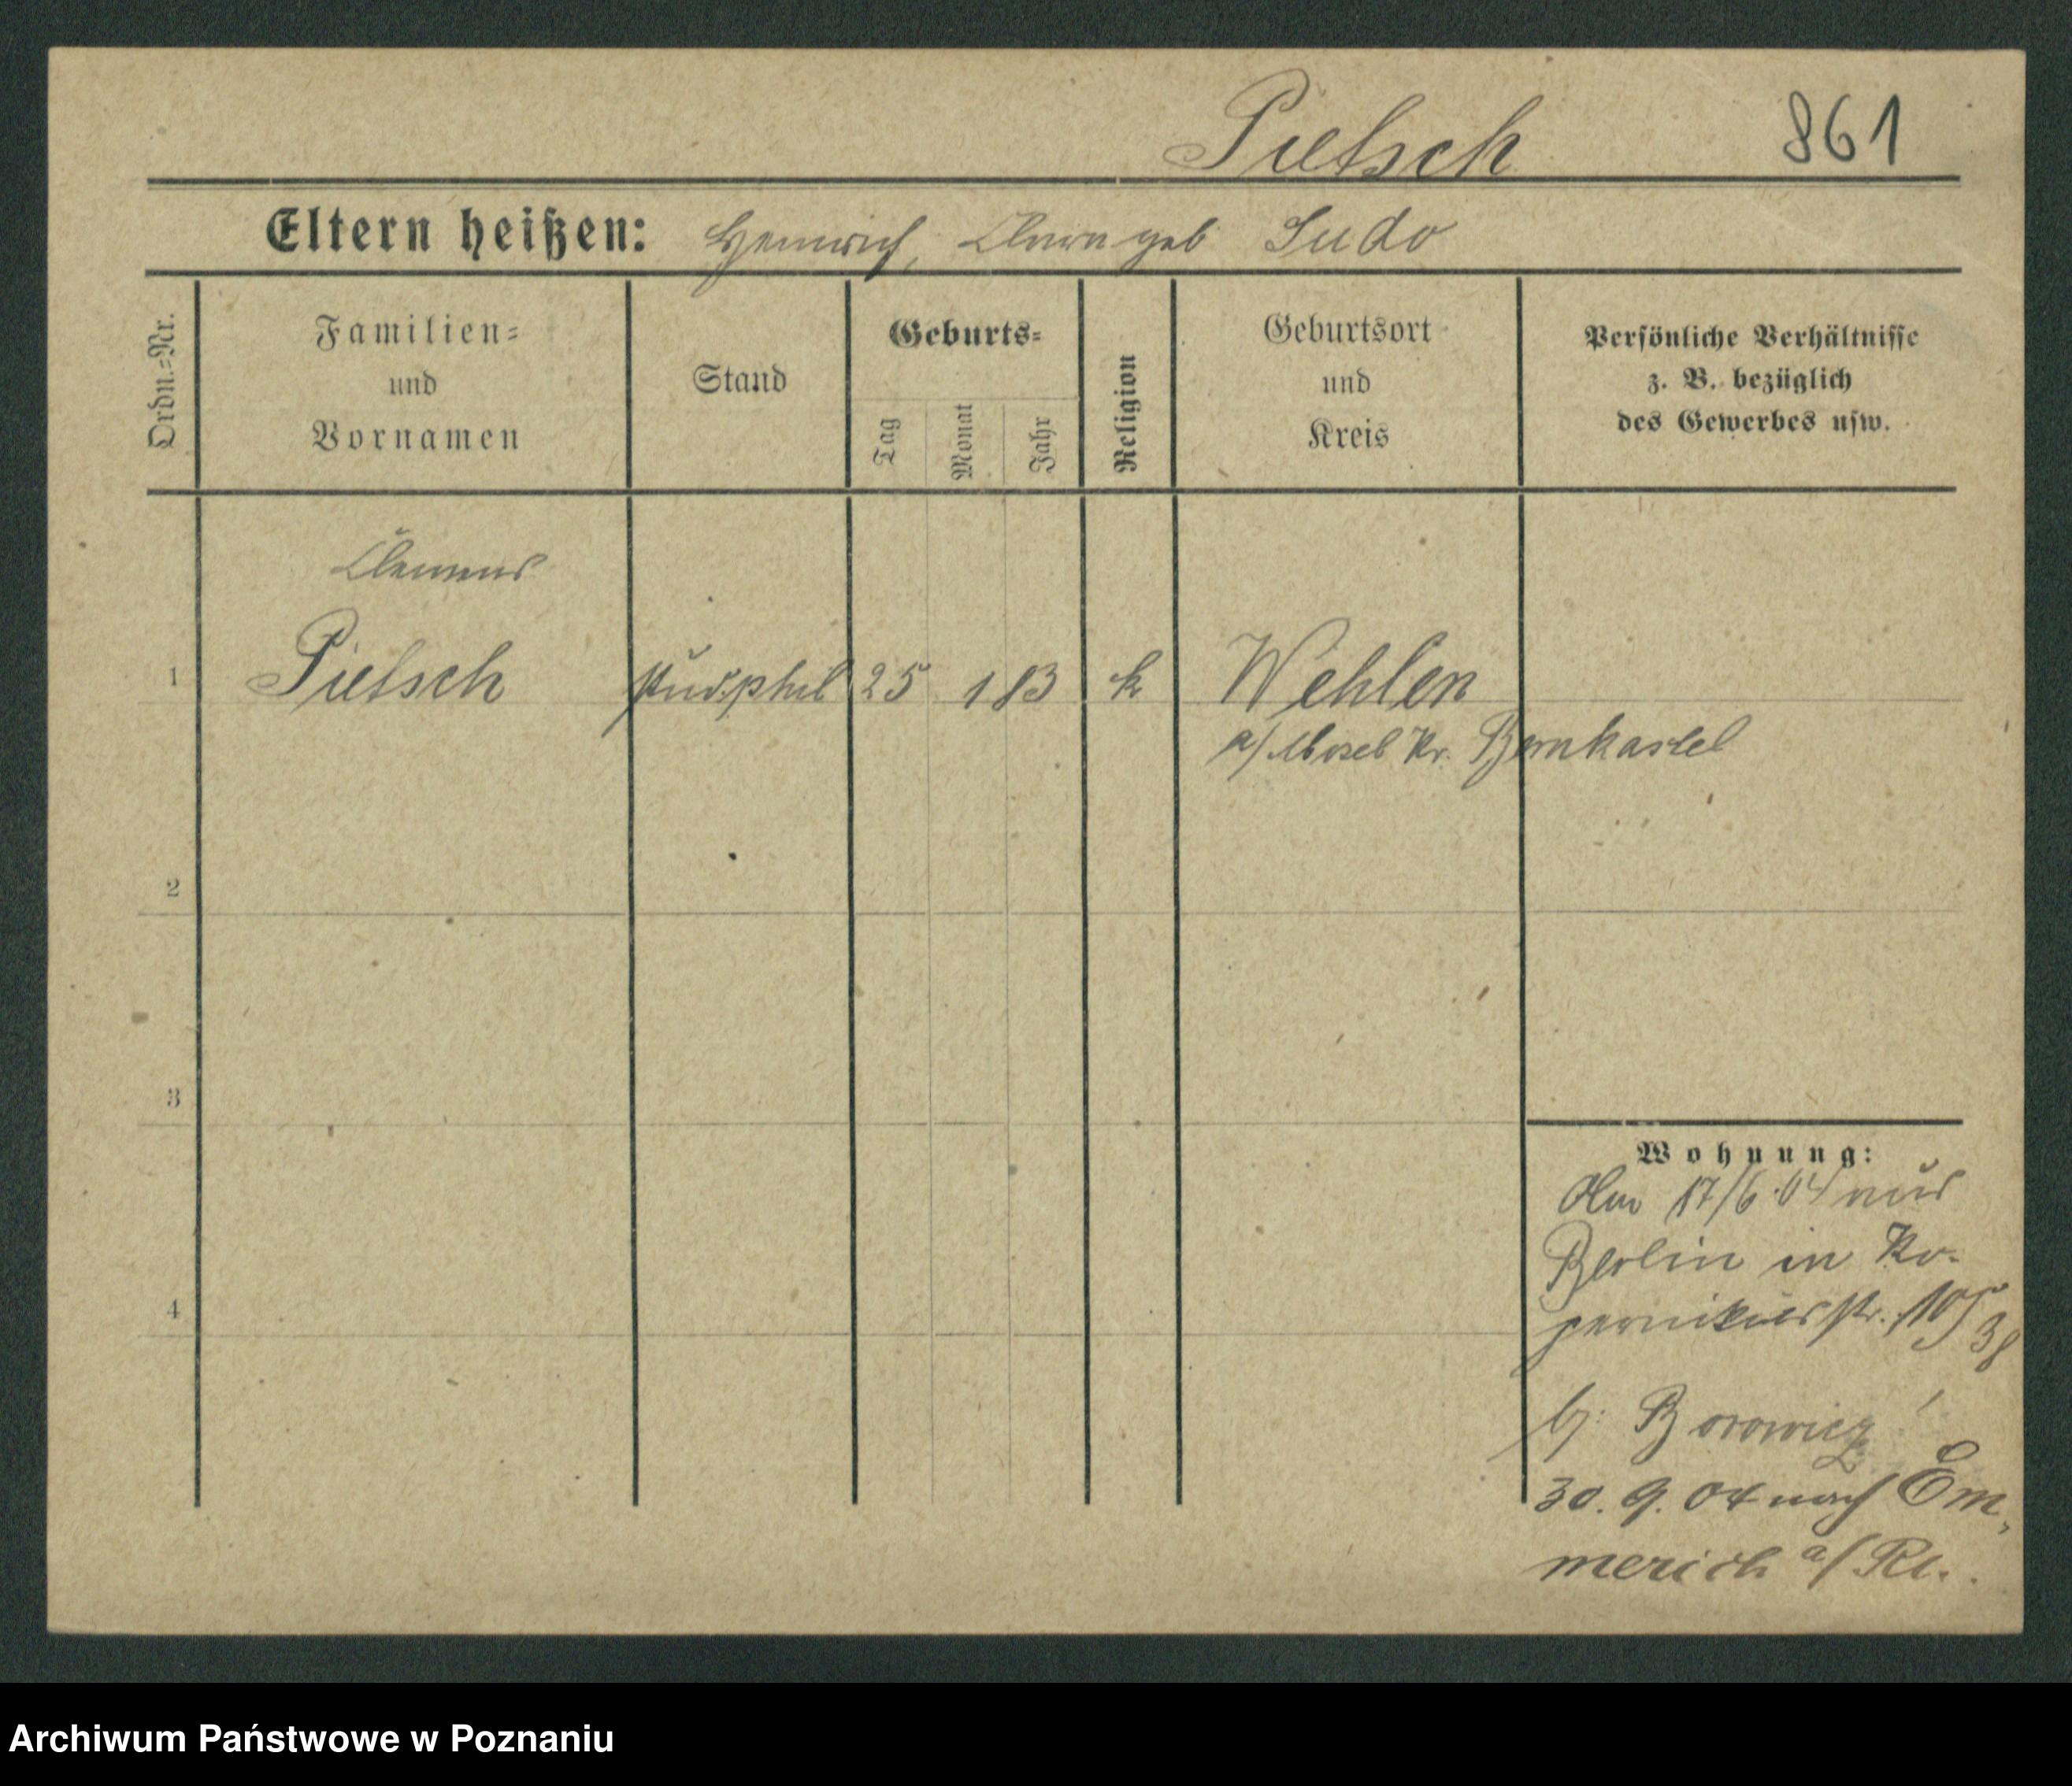 Pietsch 861
Eltern heißen: Heinrich, Clara geb Sudo
Ordn.=Nr.
Familien=
und
Vornamen
Stand
Geburts=
Tag
Monat
Jahr
Religion
Geburtsort
und
Kreis
Persönliche Verhältnisse
z. B. bezüglich
des Gewerbes usw.
Clemens
1 Pietsch stud. phil 25 1 83 k Wehlen
a/Mosel Kr. Bernkastel
2
3
4
Wohnung:
17/6.04 aus
Berlin in Ko-
pernikusstr. 10
38
b: Borowicz
30. 9. 04 nach Em-
merich a/Rh.
Archiwum Państwowe w Poznaniu